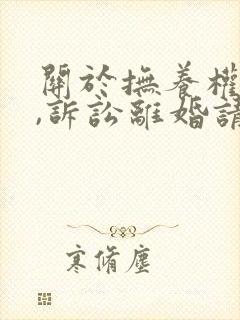 關於撫養權
,訴訟離婚請
寒脩塵